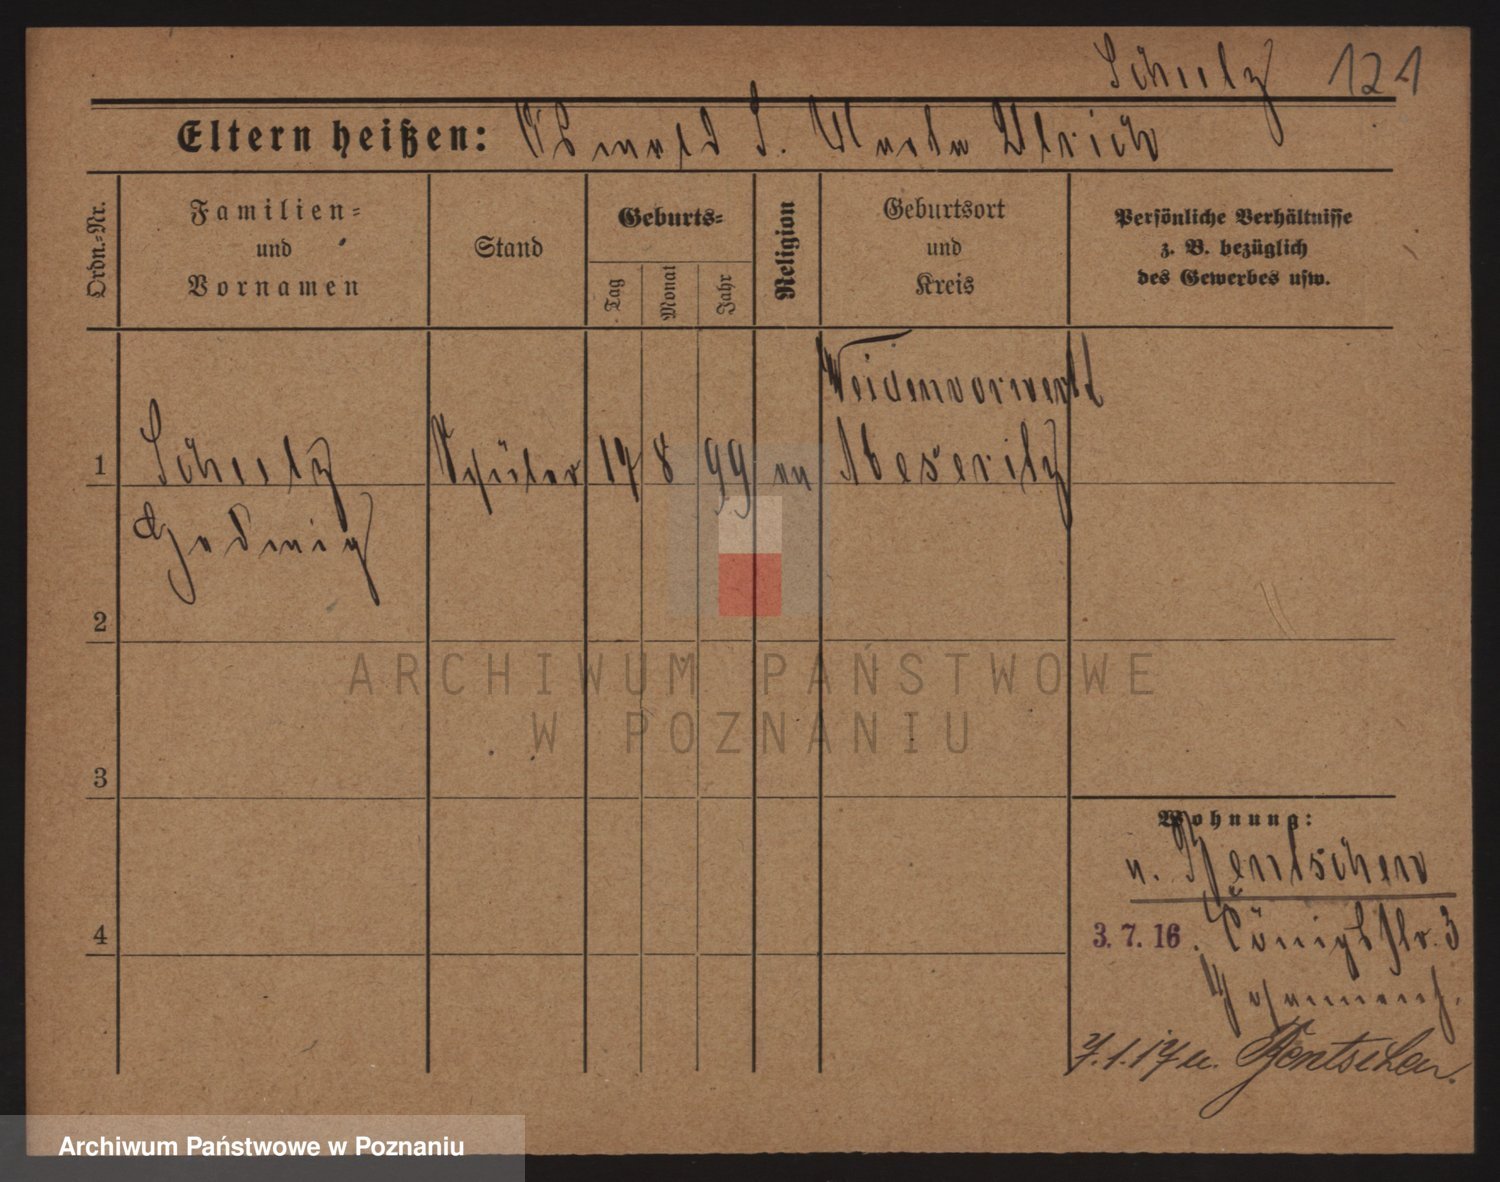 Schulz 121
Eltern heißen: Oswald S. Marta Ulrich
Ordn.-Nr.
Familien-
und
Vornamen
Stand
Geburts-
Tag
Monat
Jahr
Religion
Geburtsort
und
Kreis
Persönliche Verhältnisse
z. B. bezüglich
des Gewerbes usw.
Weidenvorwerk
1 Schulz Schüler 17 8 99 ev Meseritz
2
3
4
Wohnung:
n. Bentschen
3. 7. 16. Königstr. 3
7.1.17 n. Bentschen.
ARCHIWUM PAŃSTWOWE
W POZNANIU
Archiwum Państwowe w Poznaniu